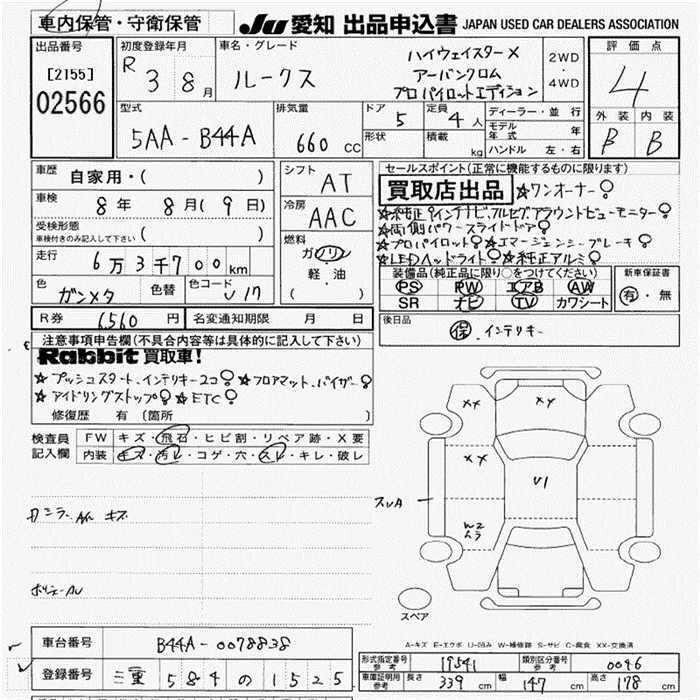 車内保管・守衛保管
JU 愛知 出品申込書 JAPAN USED CAR DEALERS ASSOCIATION
出品番号 初度登録年月 車名・グレード 評価点
[2155] R 3 8月 ルークス ハイウェイスターX 2WD・4WD 4
02566 アーバンクロム
プロパイロットエディション
型式 排気量 ドア 5 定員 4人 ディーラー・並行 外装 内装
5AA-B44A 660 cc 形状 積載 kg モデル年式 年 B B
ハンドル 左・右
車歴 自家用・( ) シフト AT セールスポイント(正常に機能するものに限ります)
買取店出品 ★ワンオーナー♀
車検 8年 8月(9日) 冷房 AAC ★純正9インチナビ.フルセグ.アラウンドビューモニター♀
受検形態 ★両側パワースライドドア♀
車検付きのみ記入して下さい ( ) 燃料 ガソリン ★プロパイロット♀★エマージェンシーブレーキ♀
走行 6万3千700km 軽・油 ★LEDヘッドライト♀★純正アルミ♀
( ) 装備品(純正品に限り○をつけてください) 新車保証書
色 ガンメタ 色替 色コード PS PW エアB AW 有・無
SR ナビ TV カワシート
R券 6,560円 名変通知期限 月 日 後日品
保.インテリキー
注意事項申告欄(不具合内容等は具体的に記入して下さい)
Rabbit 買取車!
★プッシュスタート.インテリキー2コ♀★フロアマット.バイザー♀
★アイドリングストップ♀★ETC♀
修復歴 有 (箇所 )
検査員記入欄 FW キズ・飛石・ヒビ割・リペア跡・X要
内装 キズ・汚レ・コゲ・穴・スレ・キレ・破レ
XX XY
XX
U1
スレA
W2
スペア
A-キズ E-エクボ U-凹み W-補修跡 S-サビ C-腐食 XX-交換済
車台番号 B44A-0078838
登録番号 三重 584 の 1525
形式指定番号 参考 19541 類別区分番号 参考 0046
車庫証明用 参考 長さ 339 cm 幅 147 cm 高さ 178 cm